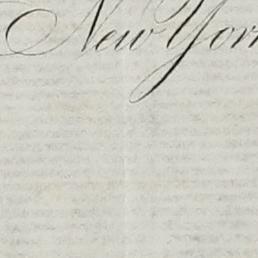 New York